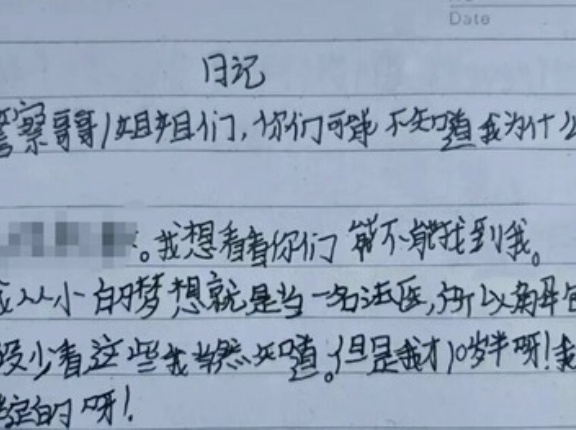 Date
日记
警察哥哥/姐姐们,你们可能不知道我为什么
。我想看看你们能不能找到我。
我从小的梦想就是当一名法医,所以解剖
没少看这些我当然知道。但是我才10岁半呀!我
的呀!